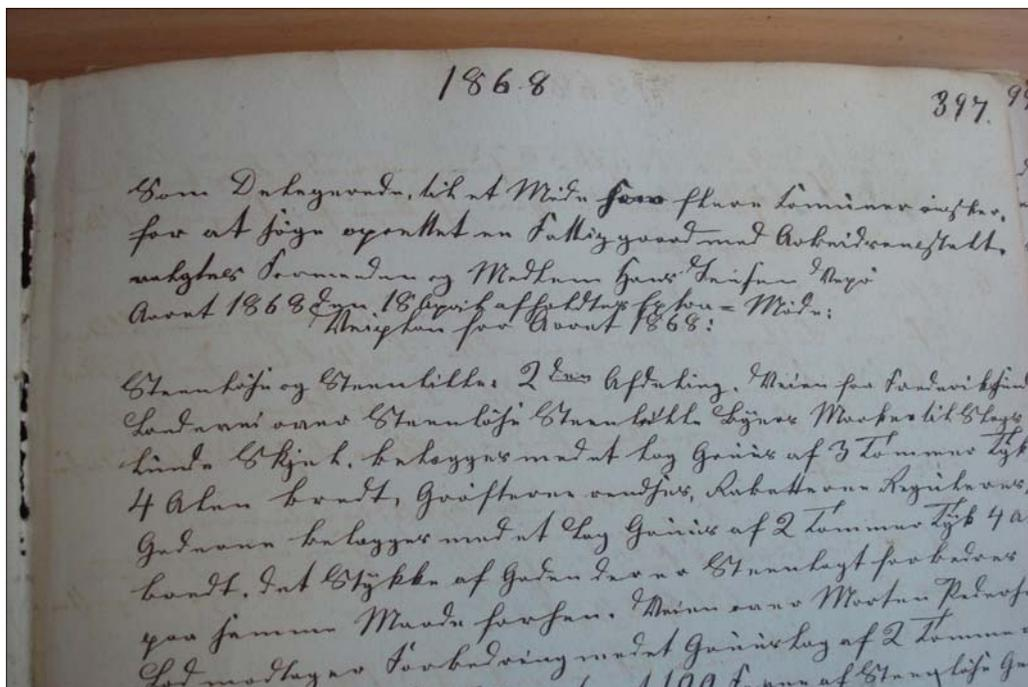 1868
397.
Som Delegerede, til et Möde som flere Comuner önsker,
for at söge oprettet en Fattiggaard med Arbeidsanstalt,
valgtes Formanden og Medlem Hans Jensen Vexö
Aaret 1868 den 18 April afholdtes Extra-Möde:
Veiplan for Aaret 1868:
Steenlöse og Steenlille: 2den Afdeling. Veien fra Frederikssund
Landevei over Steenlöse Steenlille Byers Marker til Slags
lunde Skjel, belægges med et Lag Gruus af 3 Tommer Tyk
4 Alen bredt, Gröfterne rendses, Rabatterne Reguleres,
Gaderne belægges med et Lag Gruus af 2 Tommer Tyk 4 A
bredt. det Stykke af Gaden der er Steenlagt forbedres
paa samme Maade forhen. Veien over Morten Peders
Lod modtager Forbedring med et Gruuslag af 2 Tomme
100 Favne af Steenlöse